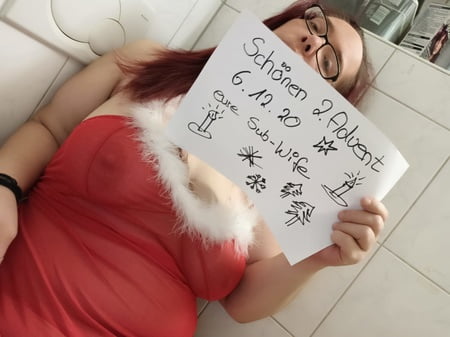 Schönen 2. Advent
6.12.20
eure
Sub-Wife